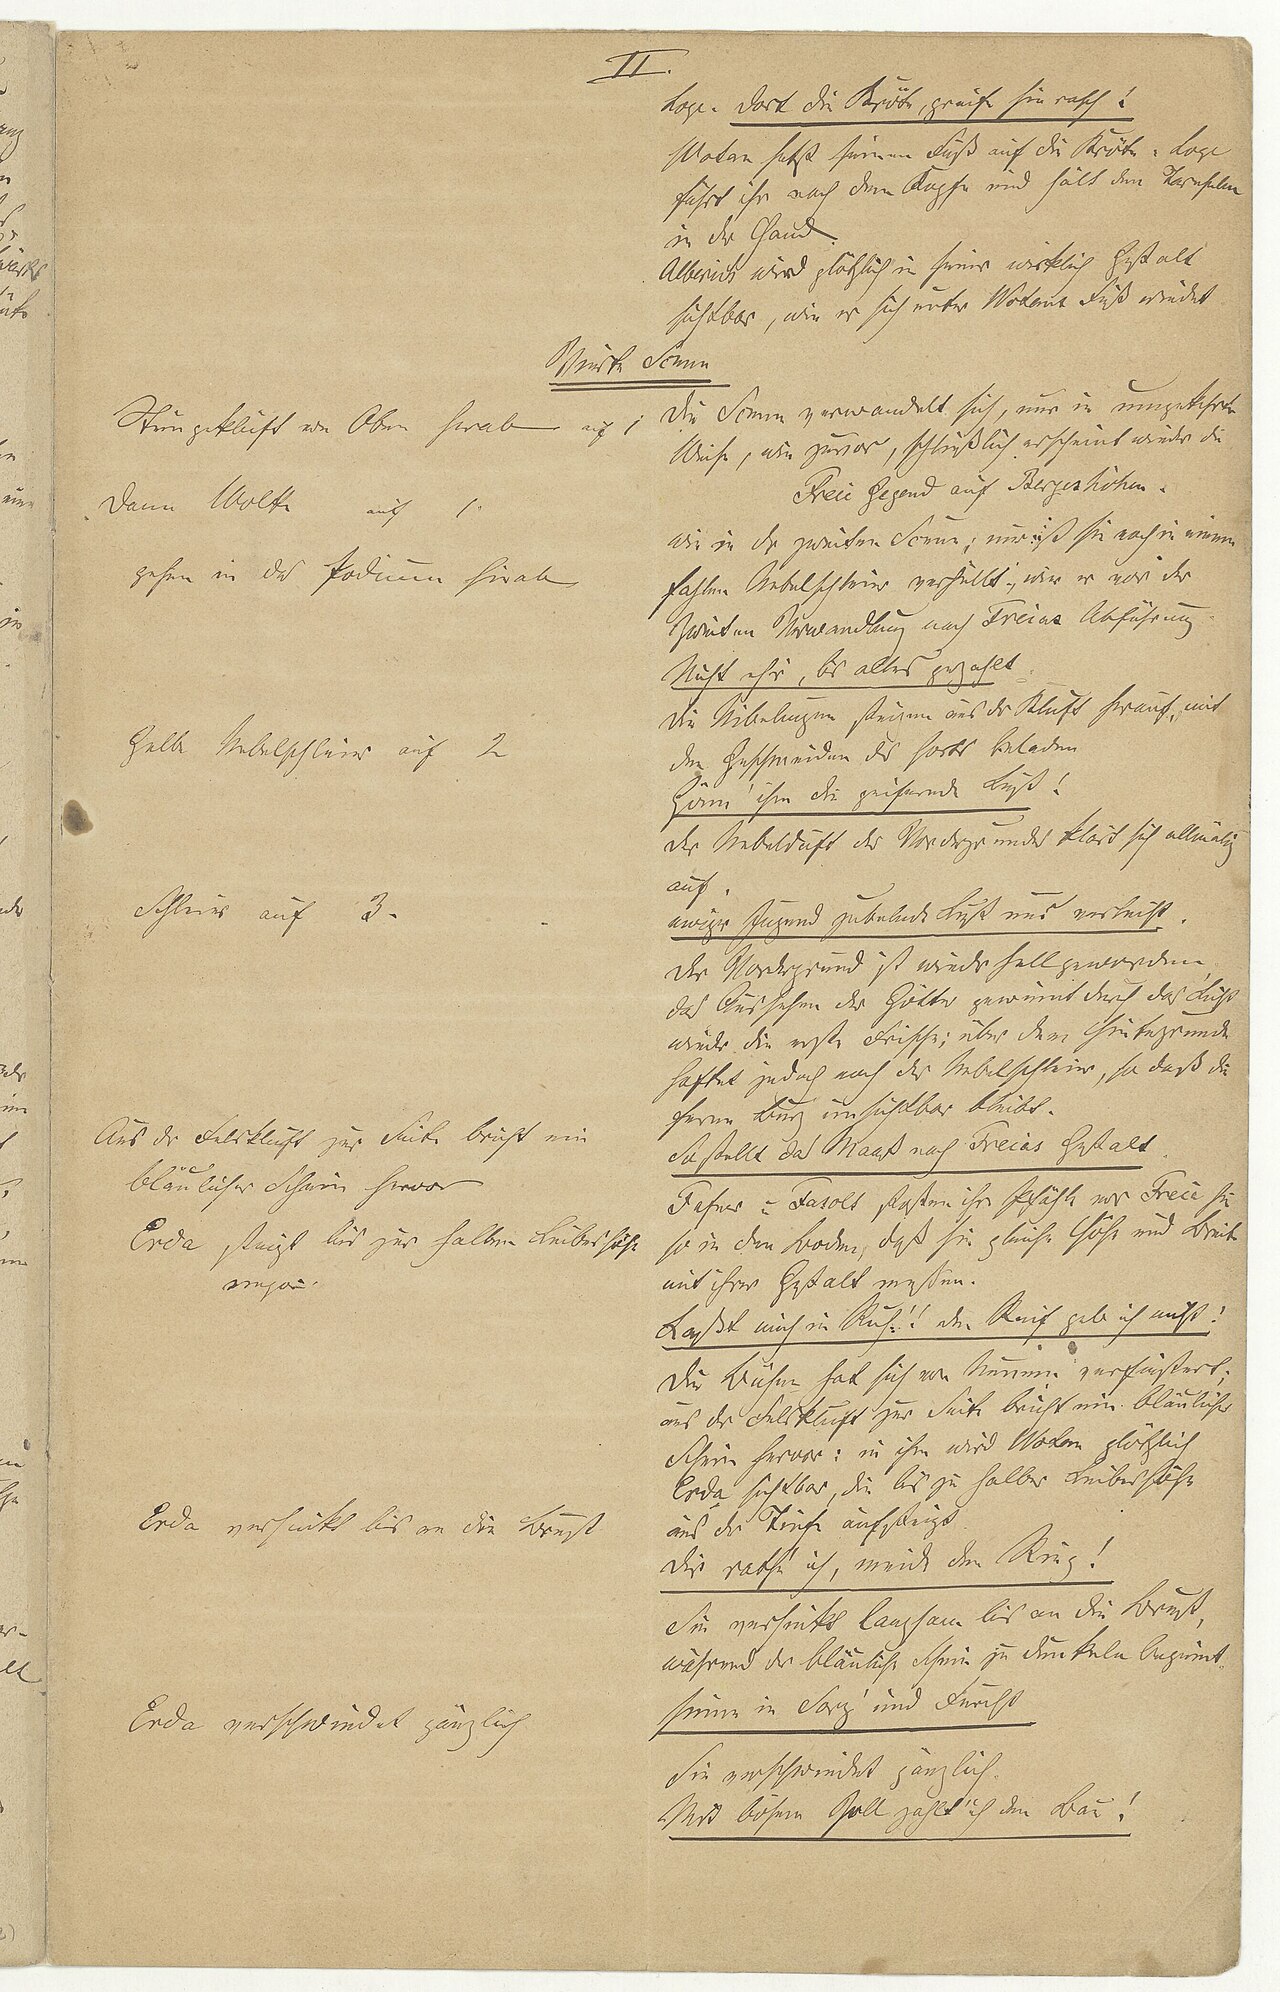 II.
Loge. Dort die Kröte, greife sie rasch!
Wotan setzt seinen Fuß auf die Kröte: Loge
fährt ihr nach dem Kopfe und hält den Tarnhelm
in der Hand.
Alberich wird plötzlich in seiner wirklich Gestalt
sichtbar, wie er sich unter Wotans Fuß windet
Vierte Scene
Steingeklüft von Oben herab auf 1
Dann Wolke auf 1.
gehen in das Podium hinab
Gelbe Nebelschleier auf 2
Schleier auf 3.
Aus der Felskluft zur Seite bricht ein
bläulicher Schein hervor
Erda steigt bis zur halben Leibeshöhe
empor.
Erda versinkt bis an die Brust
Erda verschwindet gänzlich
Die Scene verwandelt sich, nur in umgekehrter
Weise, wie zuvor, schließlich erscheint wieder die
Freie Gegend auf Bergeshöhen.
wie in der zweiten Scene; nur ist sie noch in einem
fahlen Nebelschleier verhüllt, wie er vor der
zweiten Verwandlung nach Freias Abführung.
Nicht eh'r, bis alles gezahlt.
Die Nibelungen steigen aus der Kluft herauf, mit
den Geschmeiden des Horts beladen
Gönn' ihm die geifernde Lust!
Der Nebelduft des Vordergrundes klärt sich allmälig
auf.
ewiger Jugend jubelnde Lust uns verleiht.
Der Vordergrund ist wieder hell geworden,
das Aussehen der Götter gewinnt durch das Licht
wieder die erste Frische; über dem Hintergrunde
haftet jedoch noch der Nebelschleier, so daß die
ferne Burg unsichtbar bleibt.
So stellt das Maaß nach Freias Gestalt.
Fafner u Fasolt stoßen ihre Pfähle vor Freia hin
so in den Boden, daß sie gleiche Höhe und Breite
mit ihrer Gestalt messen.
Laßt mich in Ruh'! den Reif geb ich nicht!
Die Bühne hat sich von Neuem verfinstert;
aus der Felskluft zur Seite bricht ein bläulicher
Schein hervor: in ihm wird Wotan plötzlich
Erda sichtbar, die bis zu halber Leibeshöhe
aus der Tiefe aufsteigt.
Dir rathe ich, meide den Ring!
Sie versinkt langsam bis an die Brust,
während der bläuliche Schein zu dunkeln beginnt.
sinne in Sorg' und Furcht
Sie verschwindet gänzlich.
Mit bösem Zoll zahlt' ich den Bau!